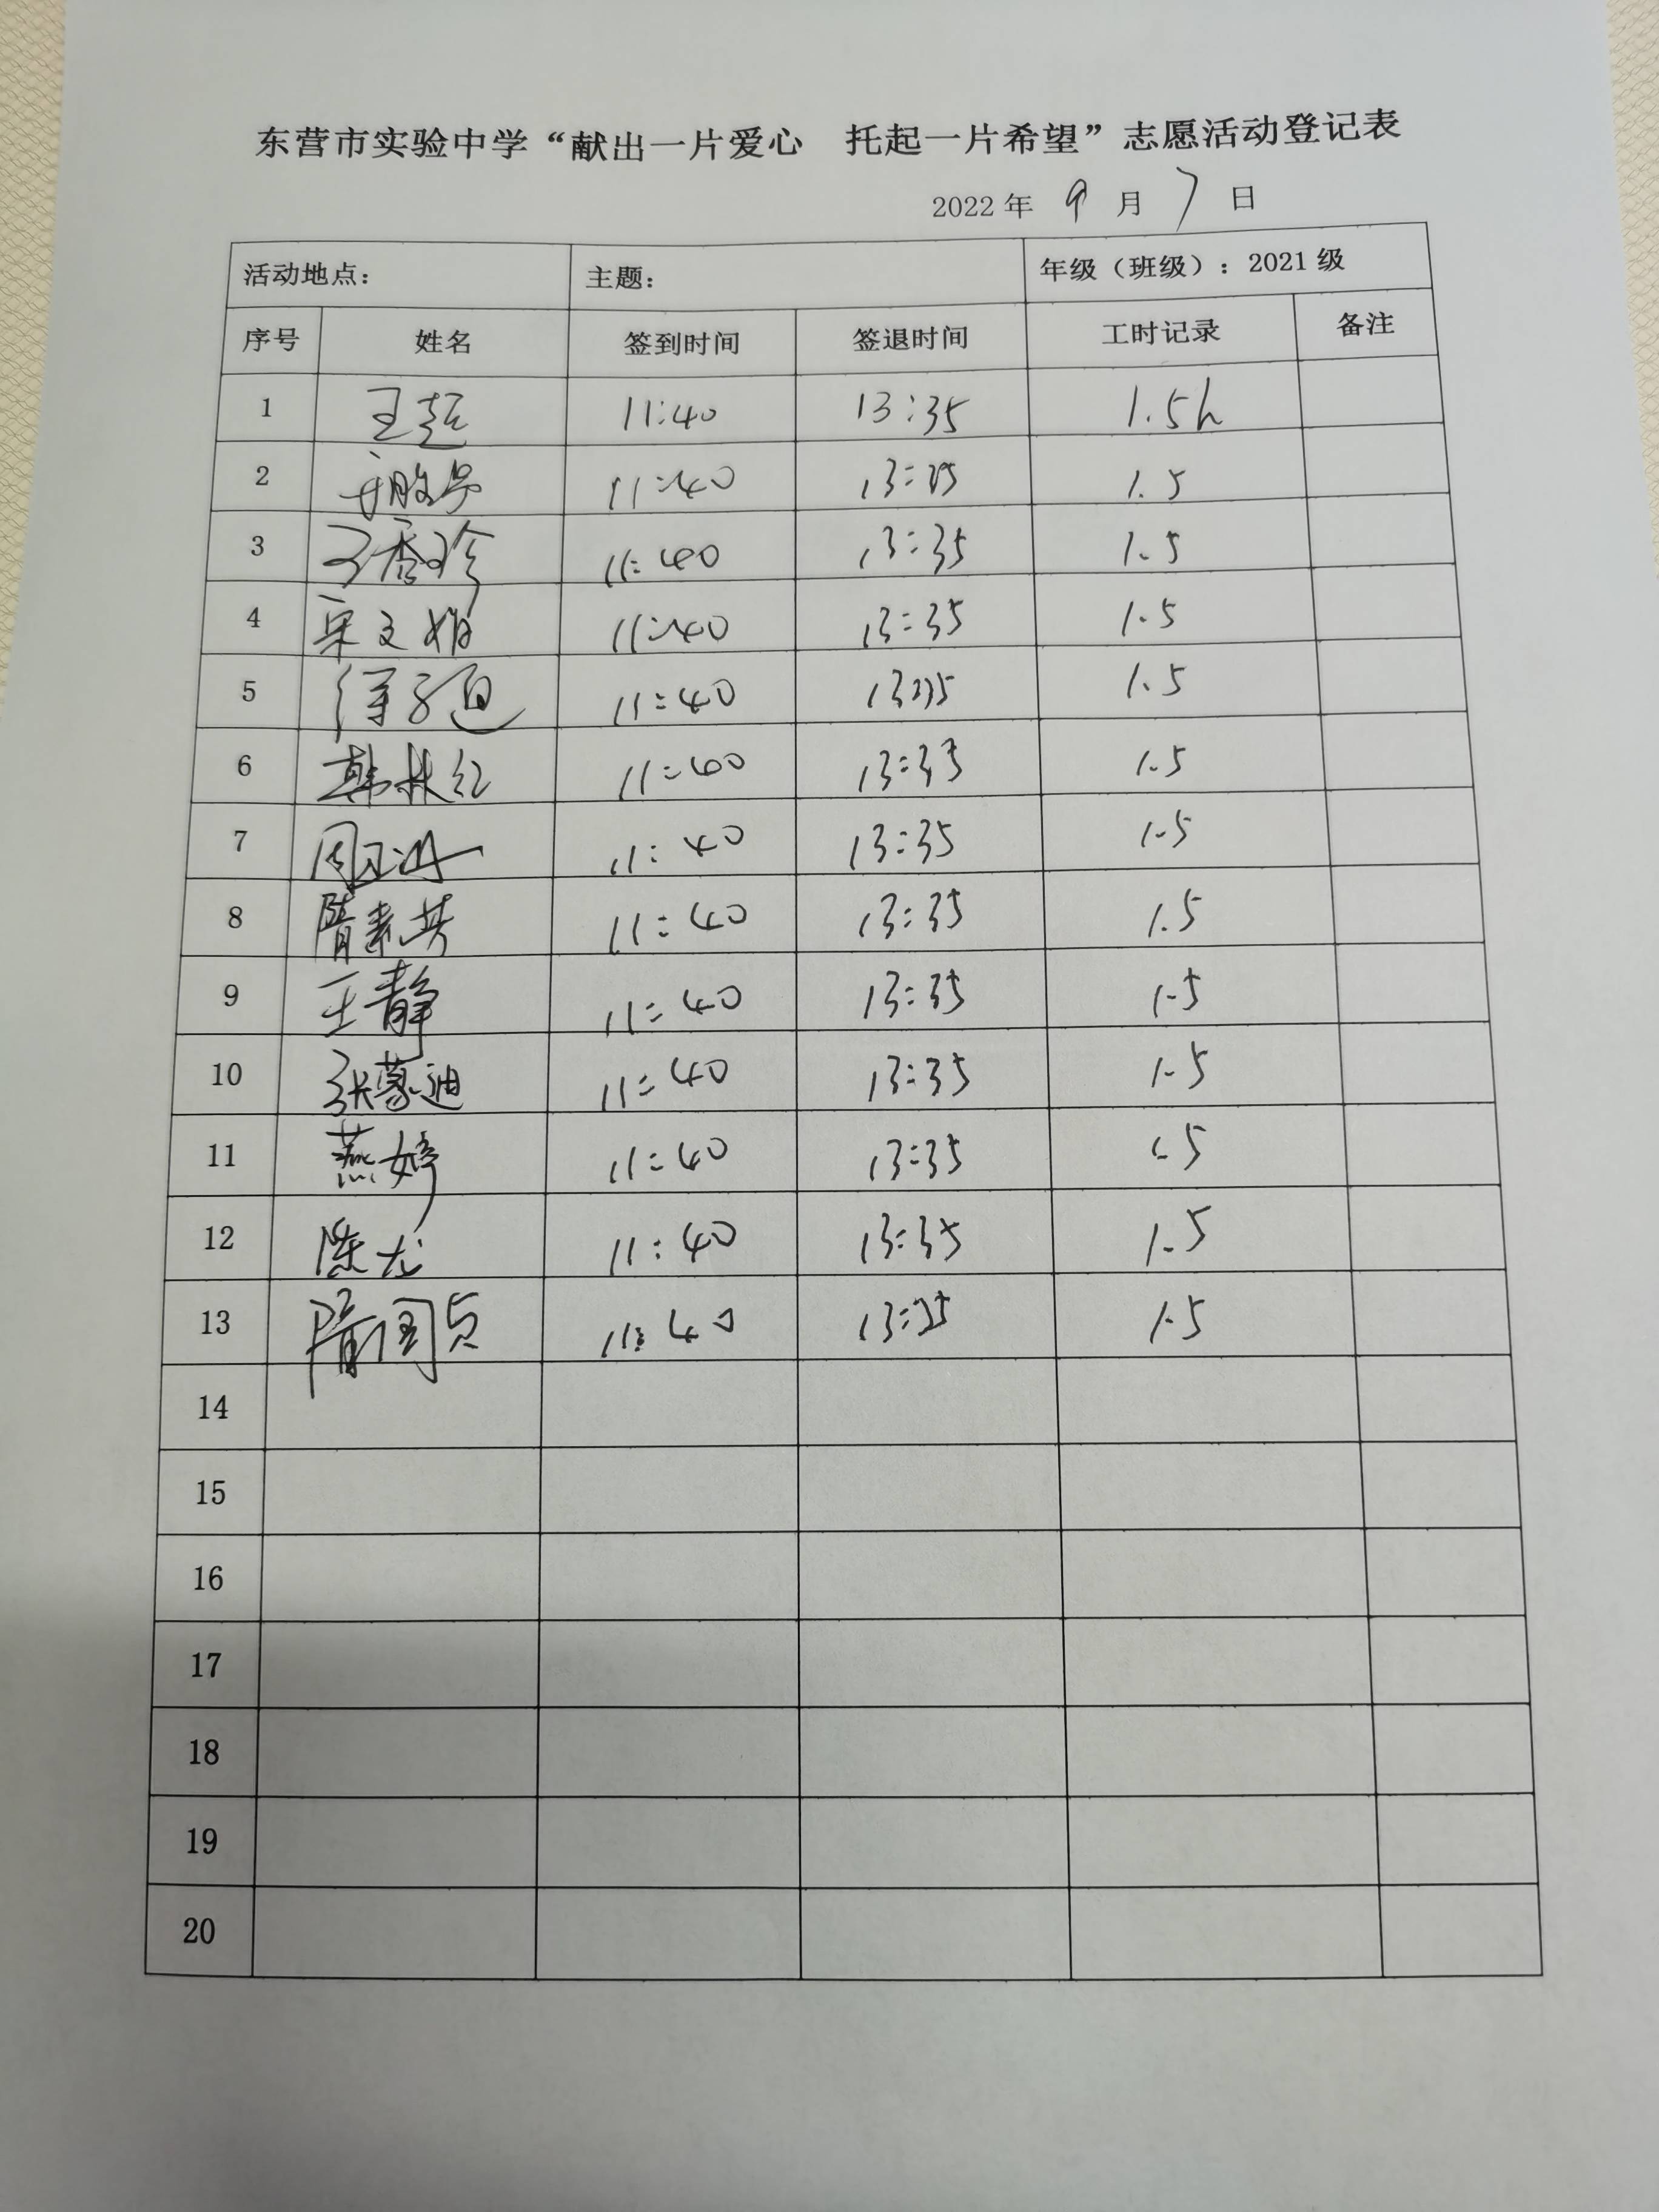 东营市实验中学“献出一片爱心 托起一片希望”志愿活动登记表
2022 年 9 月 7 日
活动地点： 主题： 年级（班级）：2021 级
序号 姓名 签到时间 签退时间 工时记录 备注
1 王超 11:40 13:35 1.5h
2 11:40 13:35 1.5
3 王秀珍 11:40 13:35 1.5
4 宋文娟 11:40 13:35 1.5
5 11:40 13:35 1.5
6 韩林红 11:40 13:35 1.5
7 11:40 13:35 1.5
8 隋素英 11:40 13:35 1.5
9 王静 11:40 13:35 1.5
10 张蒙迪 11:40 13:35 1.5
11 燕婷 11:40 13:35 1.5
12 陈龙 11:40 13:35 1.5
13 隋国贞 11:40 13:35 1.5
14
15
16
17
18
19
20